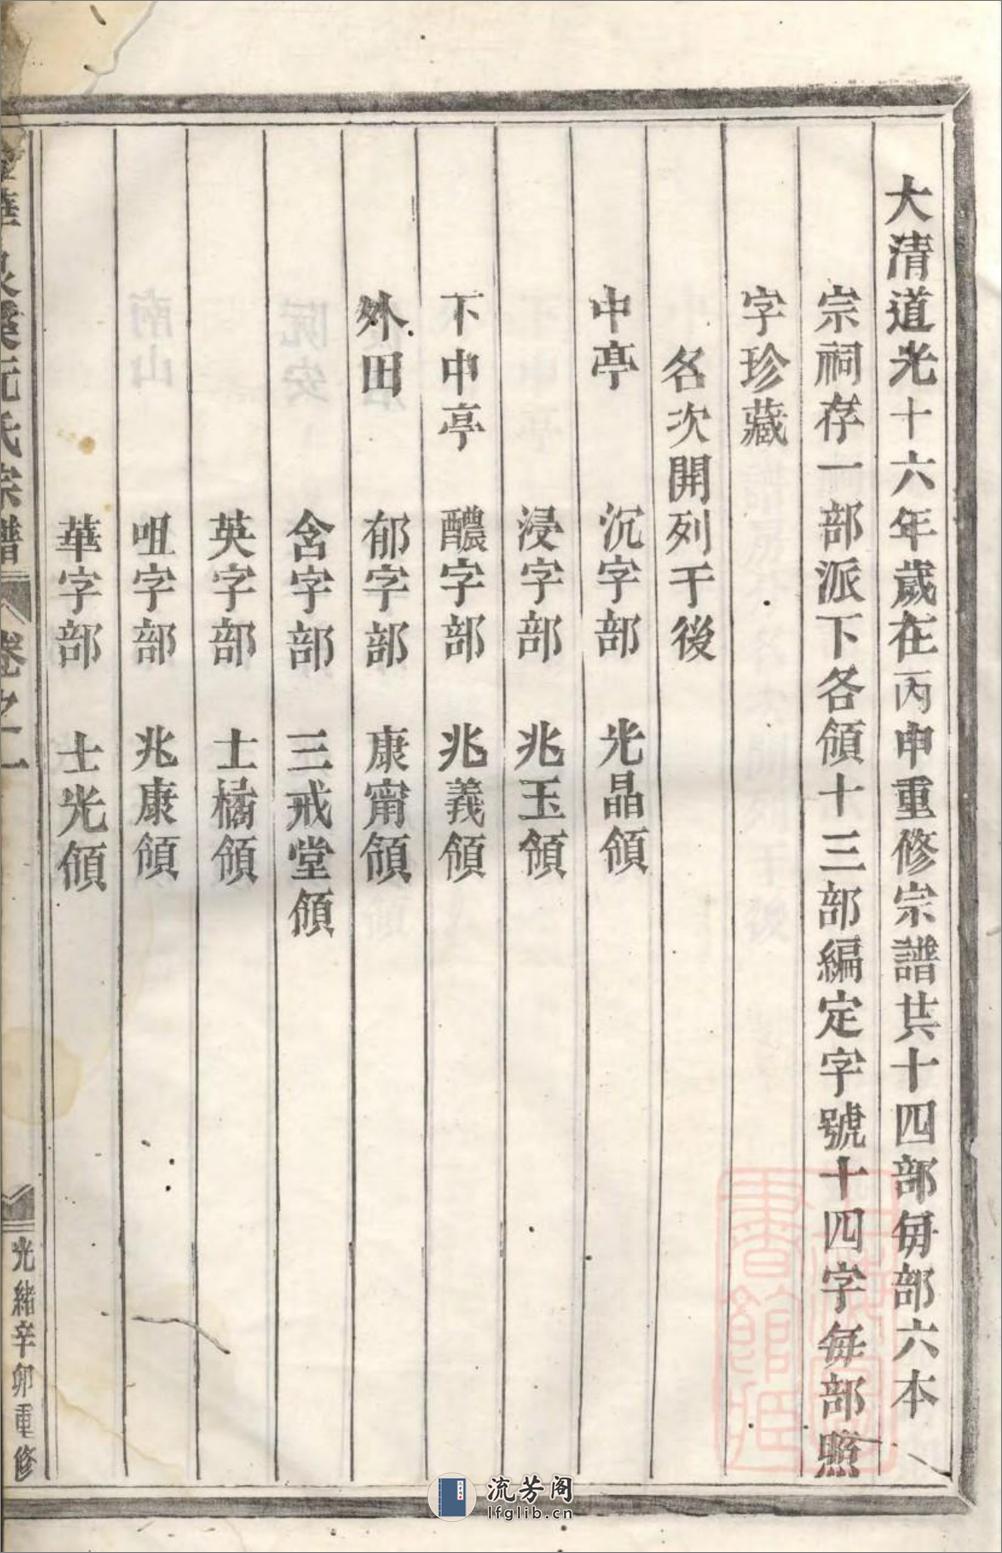 大清道光十六年歲在丙申重修宗譜共十四部每部六本
宗祠存一部派下各領十三部編定字號十四字每部照
字珍藏
名次開列于後
中亭 沉字部 光晶領
浸字部 兆玉領
下中亭 醲字部 兆義領
外田 郁字部 康甯領
含字部 三戒堂領
英字部 士橘領
咀字部 兆康領
華字部 士光領
阮氏宗譜 卷之一 光緒辛卯重修
流芳阁
lfglib.cn